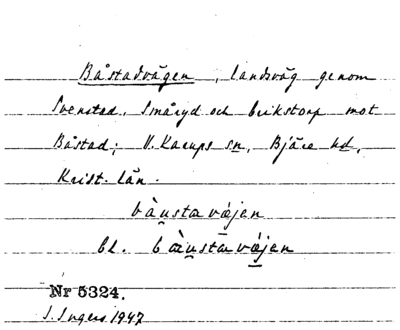 Båstadvägen, landsväg genom
Svenstad, Småryd och Erikstorp mot
Båstad; V. Karups sn, Bjäre hd,
Krist. län.
bàu̯sta vǽjen
bl. bàu̯sta vǽjen
Nr 5324.
I. Ingers 1947